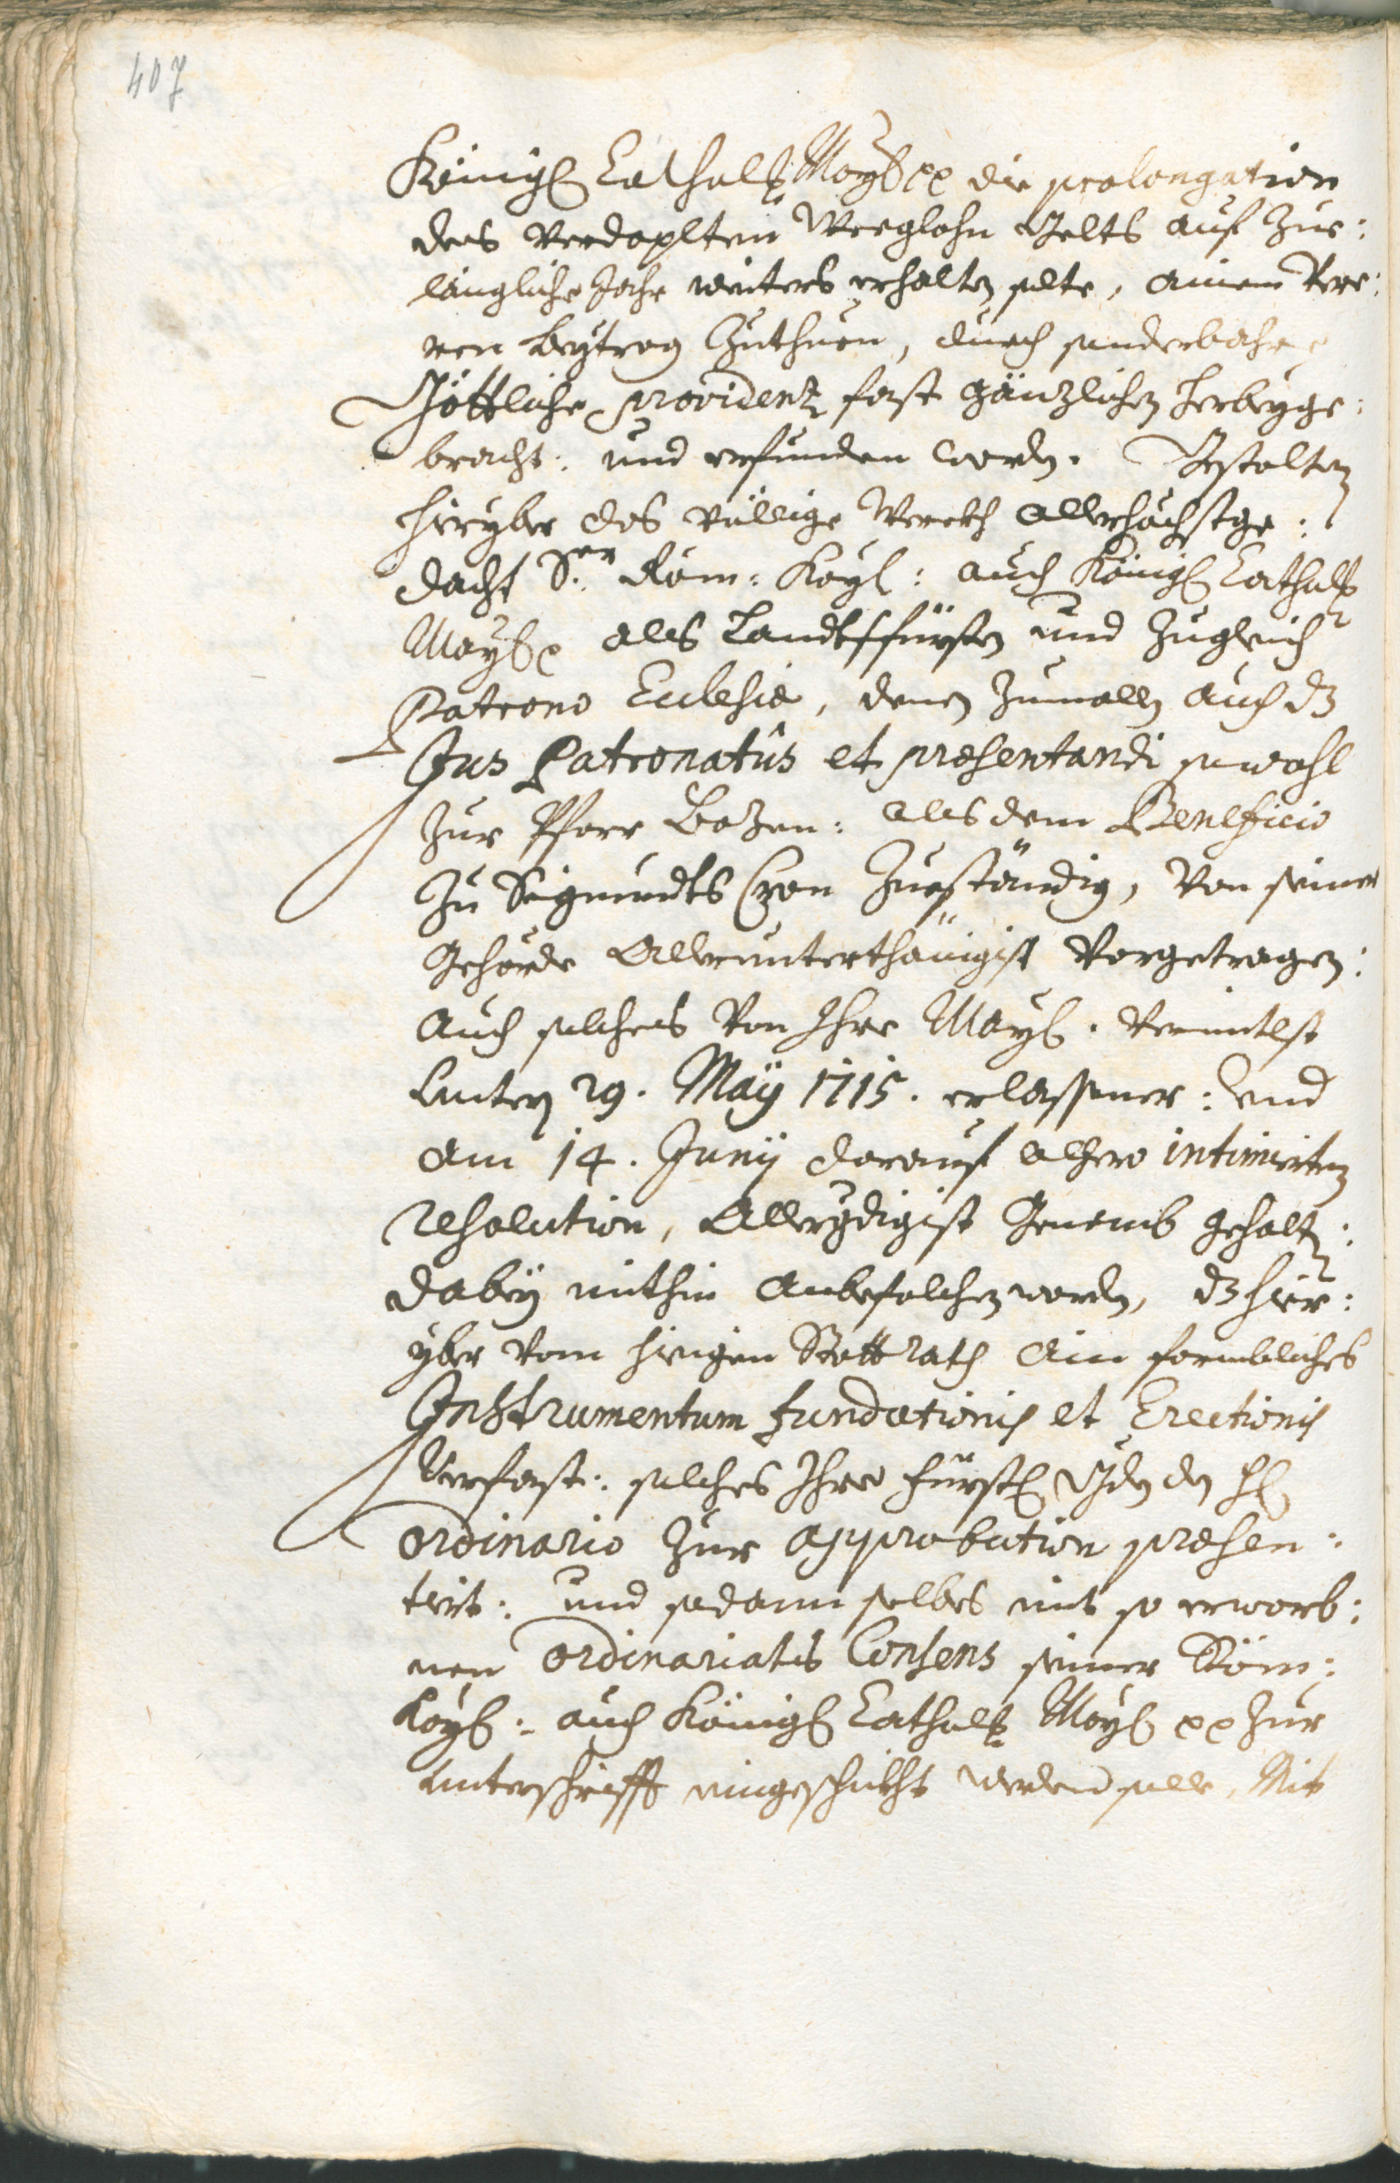 407
Königl Cathol: Mayß pp die prolongation
des verdoplten Weeglohn Gelts auf zue:
längliche Jahr weiters erhalten solte, ainem
nen Beytrag zuthuen, durch sonderbahre
Göttliche providenz fast gänzlichen herbeyge:
bracht: und erfunden worden. Gestalten
hieryber das völlige Werckh allerhöchstge:
dacht S.er Röm: Kayl: auch Königl Cathol
Mayß p als Landtsfürsten und zugleich
Patrono Eccleshiæ, deme zumallen auch dz
Jus Patronatûs et præsentandi sowohl
zur Pfarr Bozen: als dem Beneficio
zu Sigmundts Cron zueständig, von seiner
Gehörde Allerunterthänigist vorgetragen:
auch solches von Ihro Mayl. vermitlst
unterm 29. Maÿ 1715. erlassener: und
am 14. Junÿ darauf alhero intimierten
resolution, Allergdigist genemb gehalten:
dabey mithin anbefolchen worden, dz hier:
yber vom hiesigen Stattrath ain formbliches
Instrumentum fundationis et Erectionis
verfast: solches Ihro Fürstl Gdn den H
Ordinario zur approbation præsen:
tirt: und sodann selbes mit so erworb:
nen Ordinariatis Consens seiner Röm:
Kayl: auch Königl Cathol: Mayl pp zur
unterschrifft eingeschickht werden solle, Mit